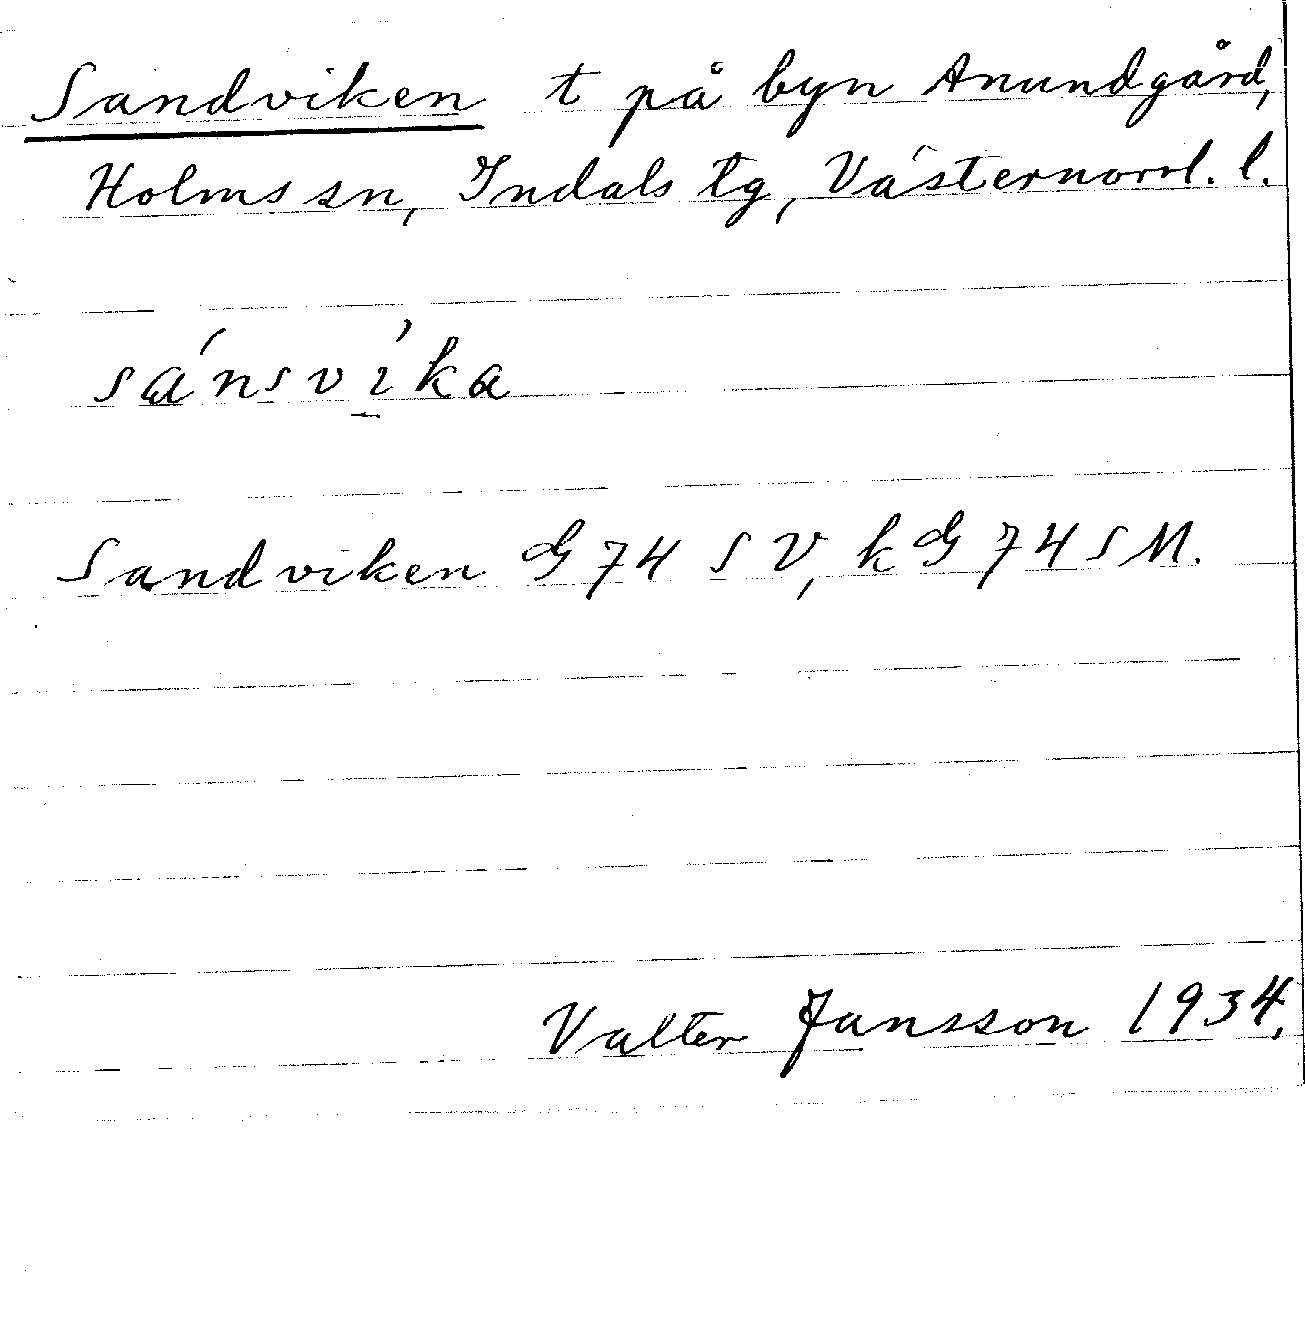 Sandviken t på byn Anundgård,
Holms sn, Indals tg, Västernorrl. l.
sánsvı̠́ka
Sandviken G 74 S V, k G 74 S M.
Valter Jansson 1934.